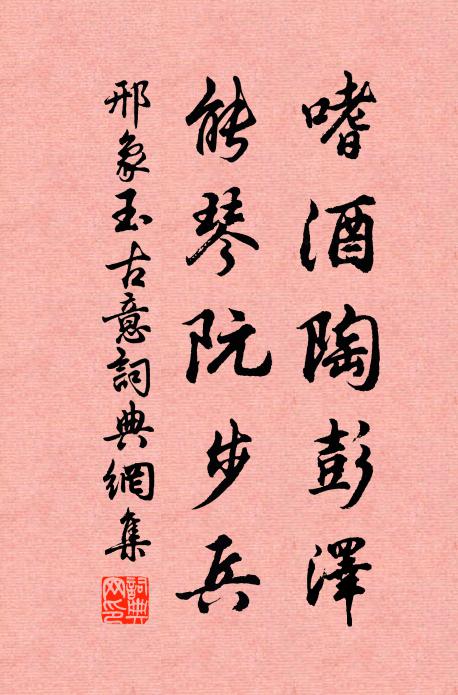 嗜酒陶彭澤
能琴阮步兵
邢象玉古意詞典網集
詞典網印